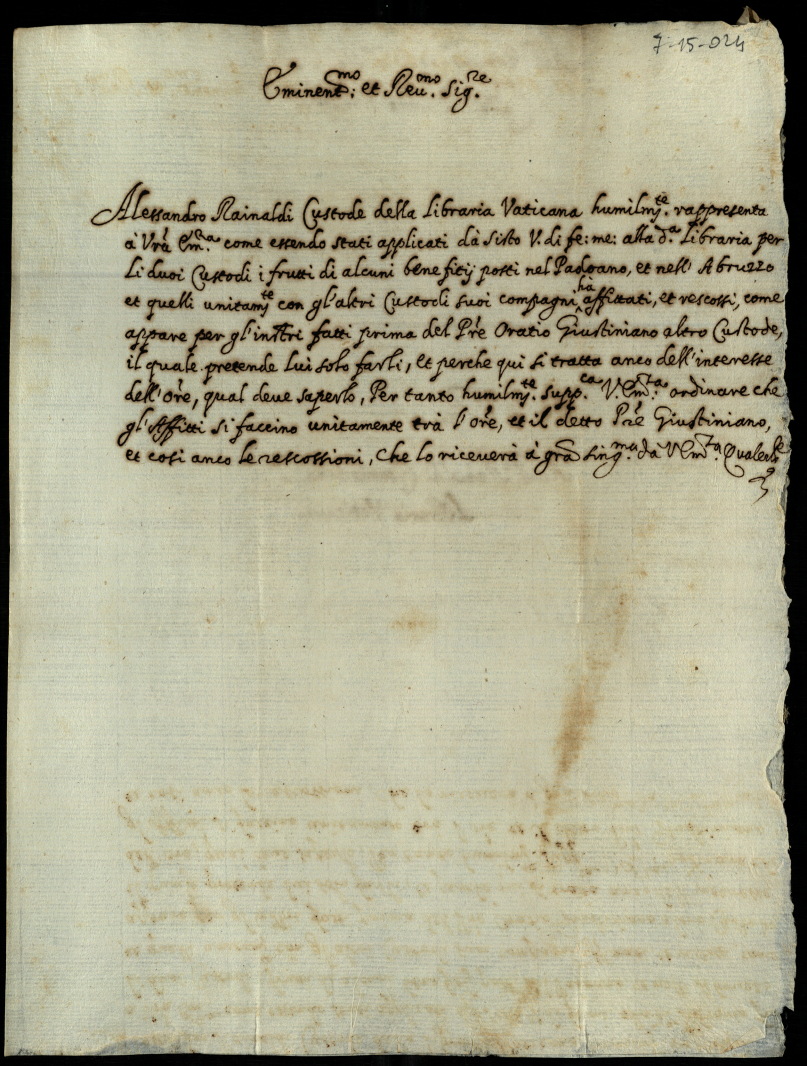 7-15-024
Eminent.mo: et Reu.mo. Sig.re
Alessandro Rainaldi Custode della Libraria Vaticana humilm.te rappresenta
à Vr̃a Em.a come essendo stati applicati dà Sisto V. di fe: me: alla d.a Libraria per
li duoi Custodi i frutti di alcuni benefitij posti nel Padoano, et nell' Abruzzo
et quelli unitam.te con gl'altri Custodi suoi compagni ha affittati, et rescossi, come
appare per gl'inst̃ri fatti prima del Pr̃e Oratio Giustiniano altro Custode,
il quale pretende lui solo farli, Et perche qui si tratta anco dell'interesse
dell'Or̃e, qual deue saperlo, Per tanto humilm.te supp.ca V. Em.za ordinare che
gl'Affitti si faccino unitamente trà l'Or̃e, et il detto Pr̃e Giustiniano,
et cosi anco le rescossioni, Che lo riceuerà à gr̃a sing.ma dà V. Em.za.